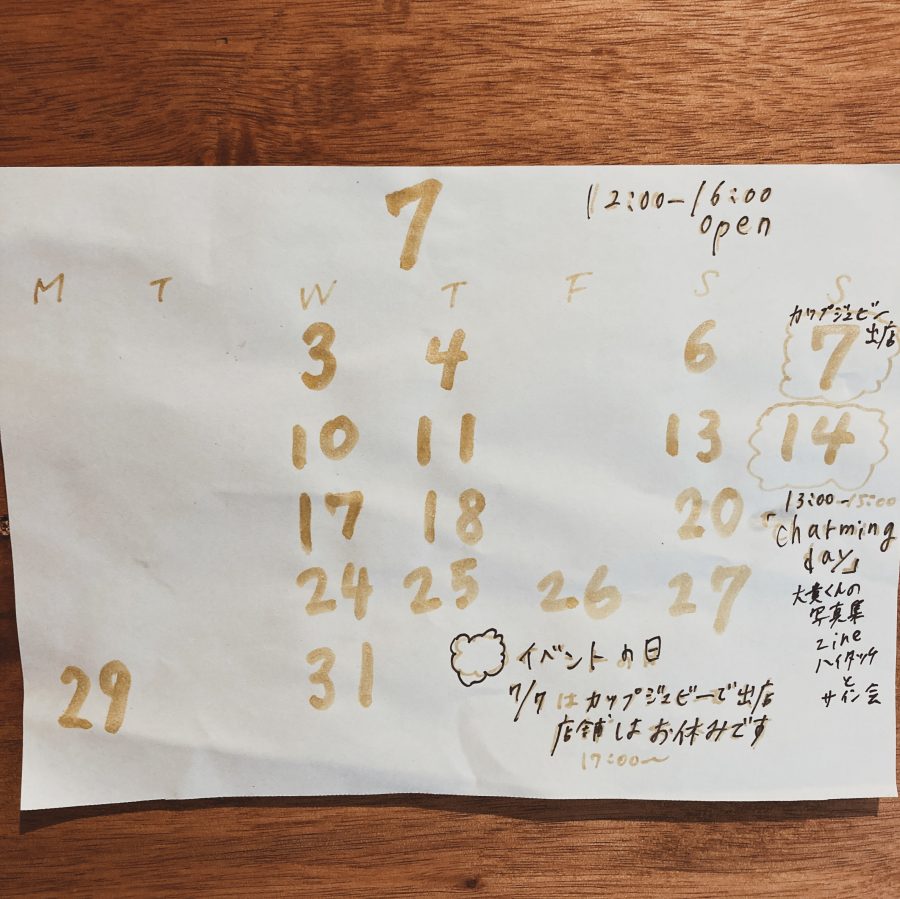 7
12:00-16:00
open
M T W T F S S
カップジュビー
出店
3 4 6 7
10 11 13 14
13:00-15:00
17 18 20
「charming
day」
24 25 26 27
大貴くんの
写真集
zine
ハイタッチ
と
サイン会
29 31
イベントの日
7/7はカップジュビーで出店
店舗はお休みです
17:00〜